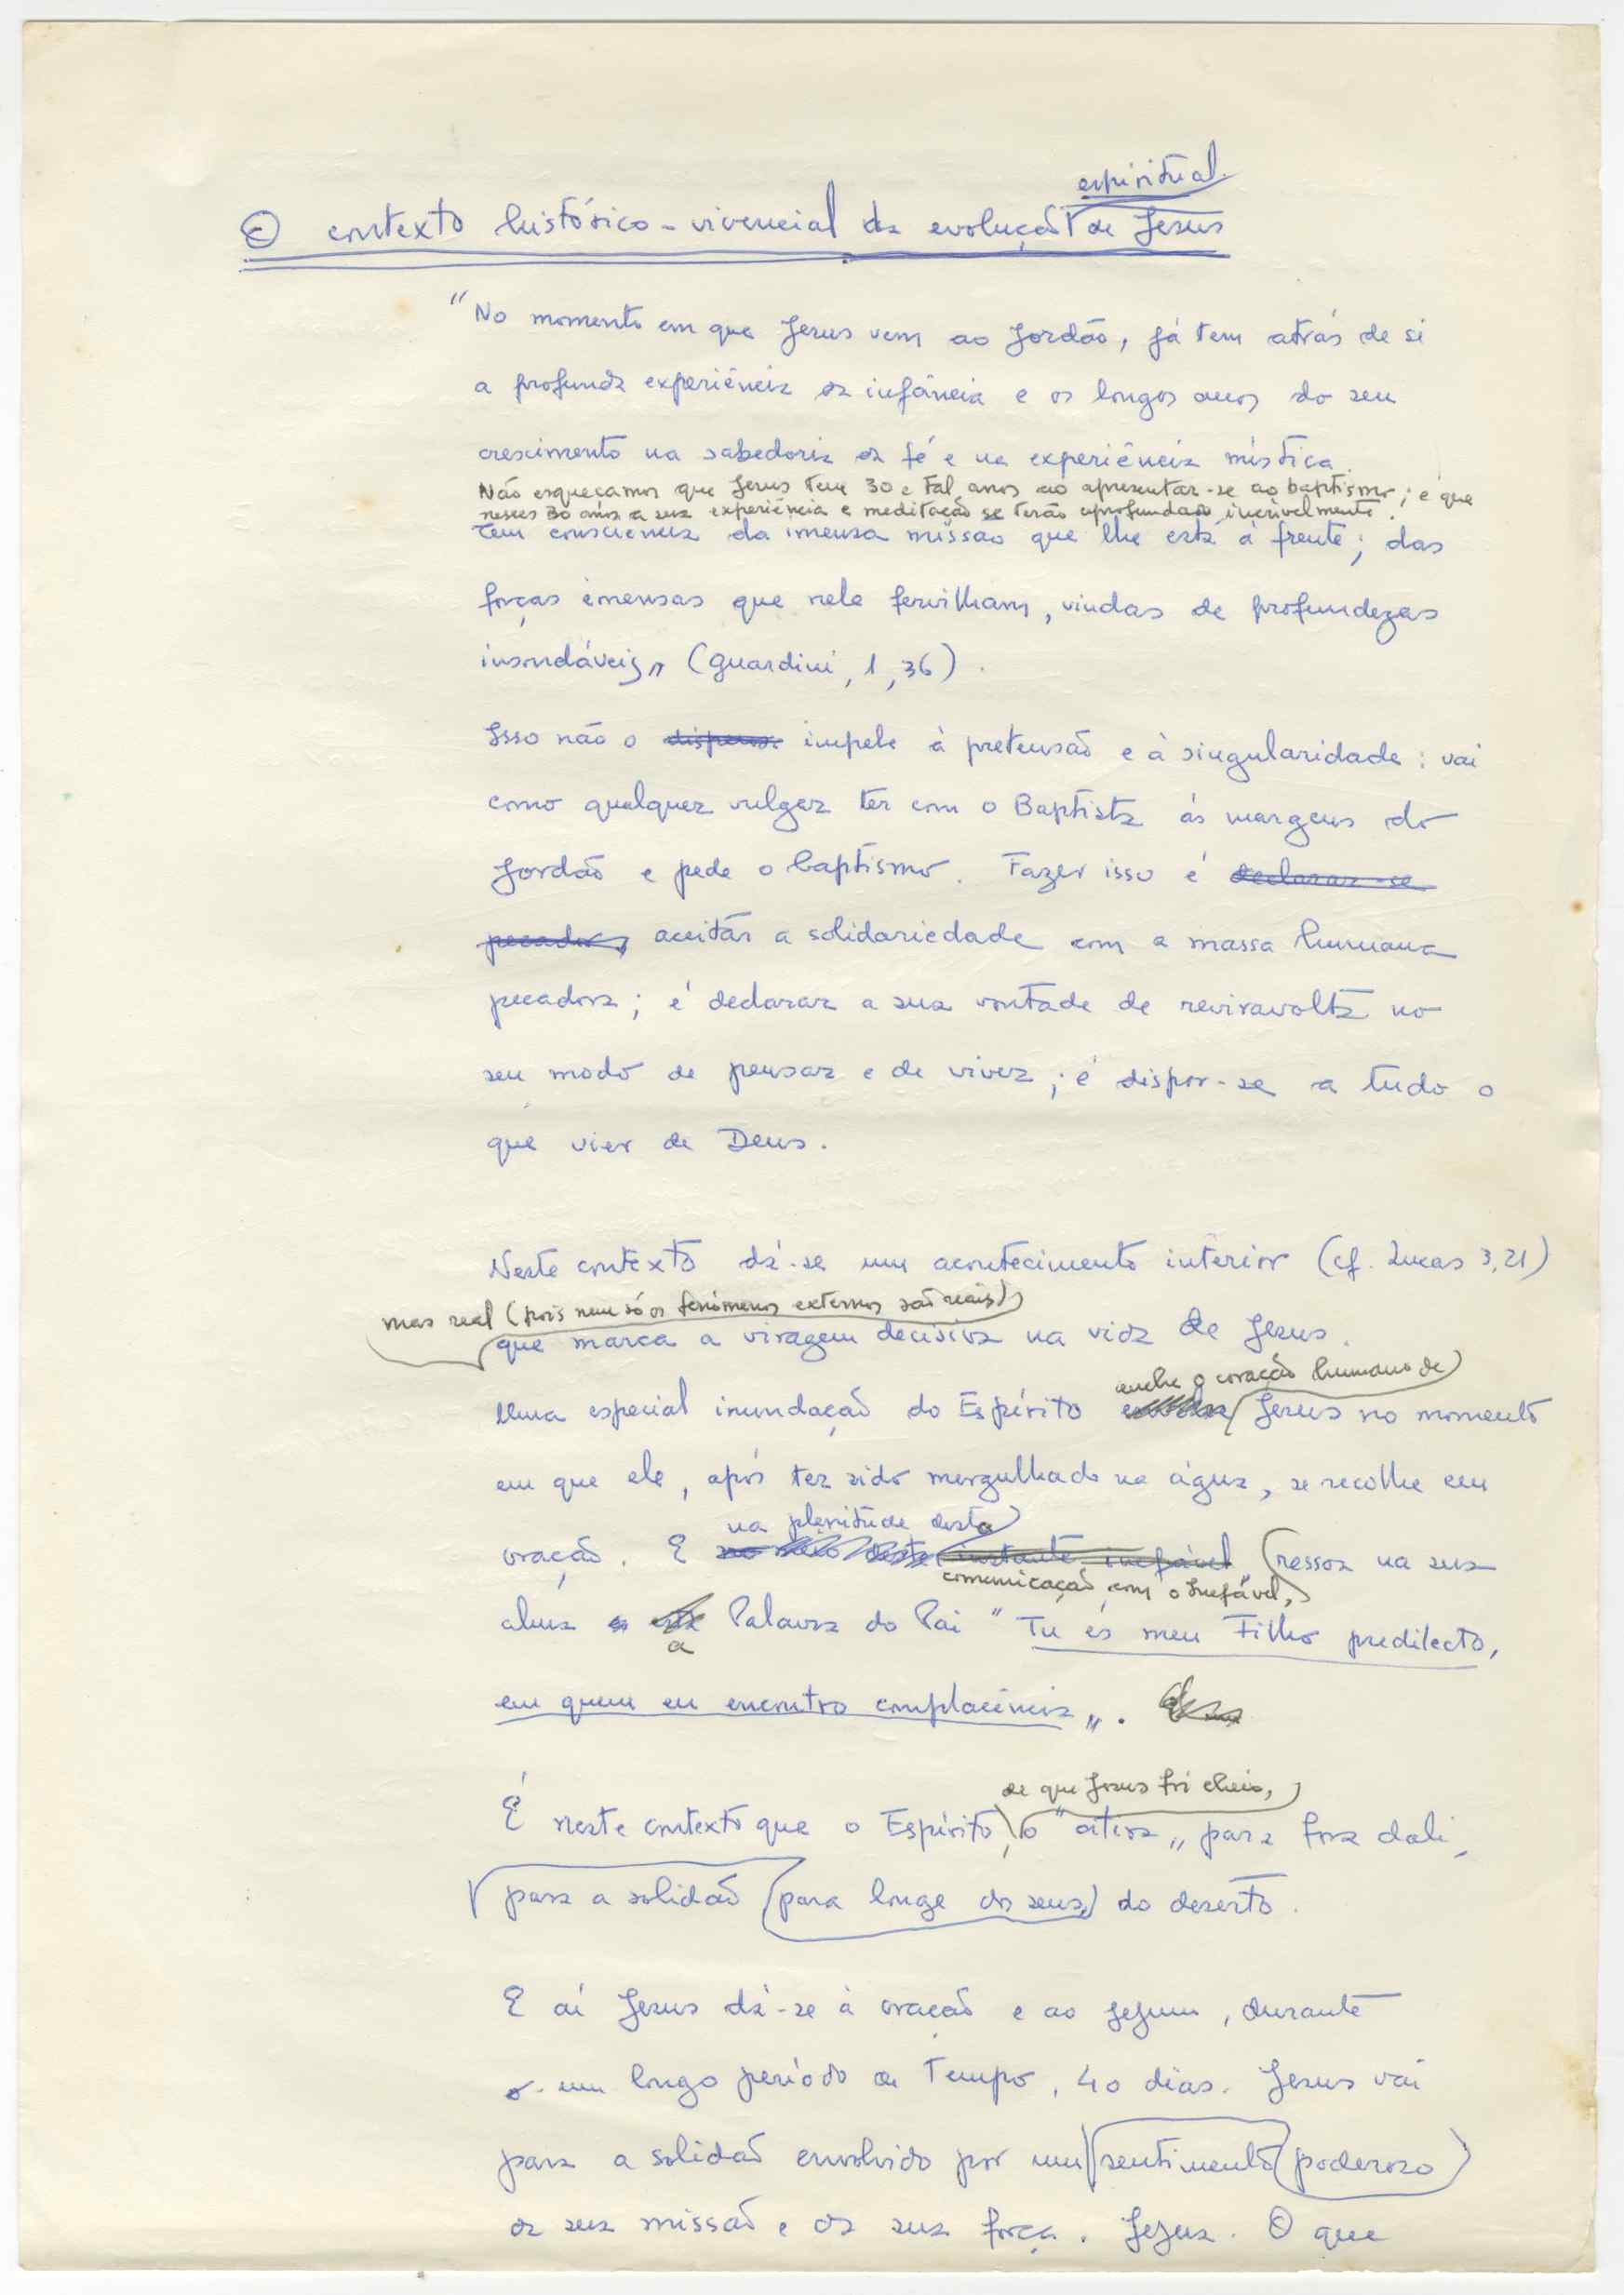 espiritual
O contexto histórico-vivencial da evolução de Jesus
"No momento em que Jesus vem ao Jordão, já tem atrás de si
a profunda experiência da infância e os longos anos do seu
crescimento na sabedoria da fé e na experiência mística.
Não esqueçamos que Jesus tem 30 e tal anos ao apresentar-se ao baptismo; e que
nesses 30 anos a sua experiência e meditação se terão aprofundado incrivelmente.
Tem consciência da imensa missão que lhe está à frente; das
forças imensas que nele fervilham, vindas de profundezas
insondáveis„ (Guardini, 1, 36).
Isso não o dispensa impele à pretensão e à singularidade: vai
como qualquer vulgar ter com o Baptista às margens do
Jordão e pede o baptismo. Fazer isso é declarar-se
pecador, aceitar a solidariedade com a massa humana
pecadora; é declarar a sua vontade de reviravolta no
seu modo de pensar e de viver; é dispor-se a tudo o
que vier de Deus.
Neste contexto dá-se um acontecimento interior (cf. Lucas 3,21)
mas real (pois nem só os fenómenos externos são reais)
que marca a viragem decisiva na vida de Jesus.
enche o coração humano de
Uma especial inundação do Espírito Jesus no momento
em que ele, após ter sido mergulhado na água, se recolhe em
na plenitude desta
oração. E no meio deste instante inefável, ressoa na sua
comunicação com o Inefável,
alma esta Palavra do Pai "Tu és meu Filho predilecto,
a
em quem eu encontro complacência„.
de que Jesus foi cheio,
É neste contexto que o Espírito, o "atira„ para fora dali,
para a solidão (para longe dos seus,) do deserto.
E aí Jesus dá-se à oração e ao jejum, durante
um longo período de tempo, 40 dias. Jesus vai
para a solidão envolvido por um sentimento poderoso
da sua missão e da sua força. Jejua. O que